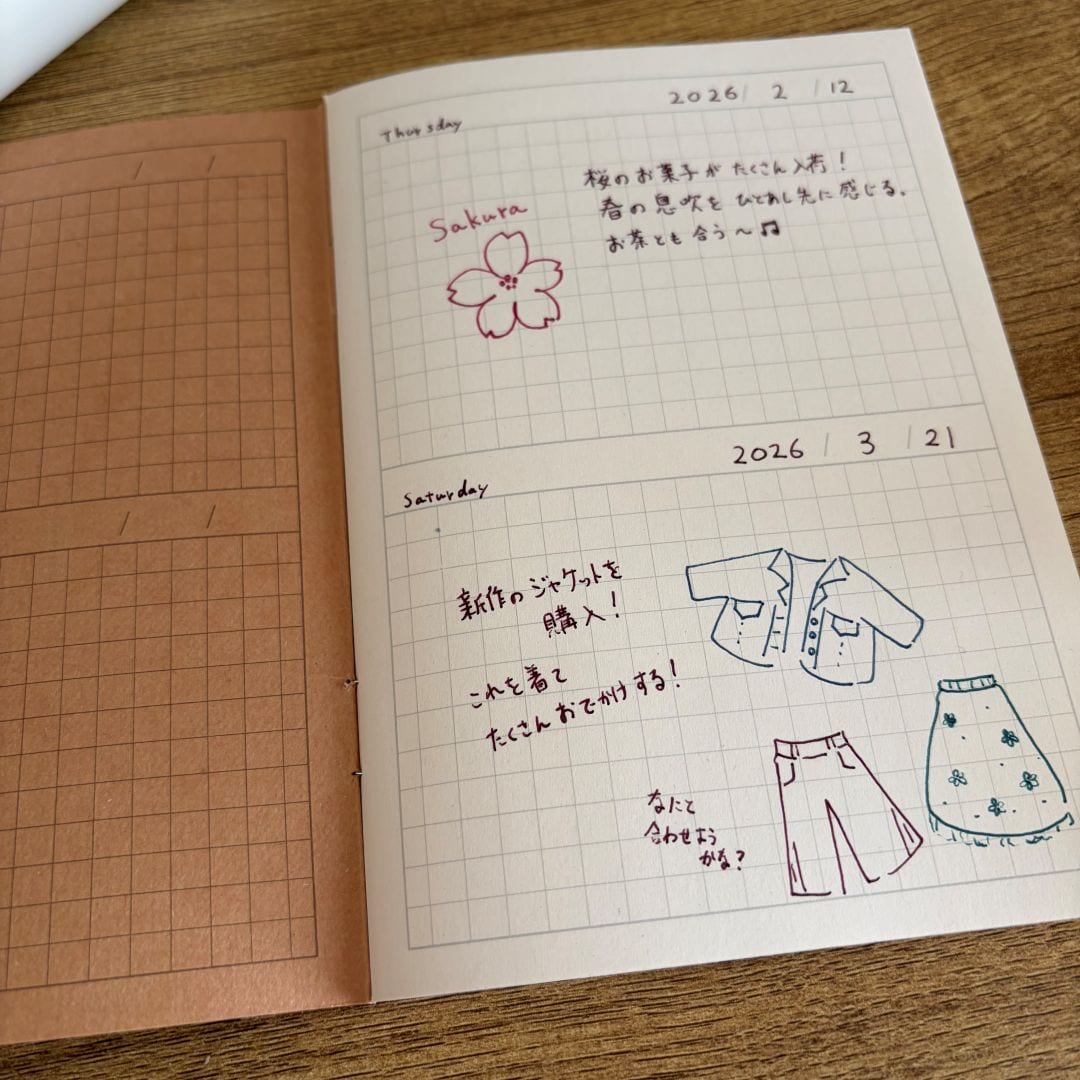 Thursday
2026/ 2 / 12
桜のお菓子が たくさん入荷！
春の息吹を ひとあし先に感じる.
お茶とも合う〜♫
Sakura
Saturday
2026 / 3 / 21
新作のジャケットを
購入！
これを着て
たくさんおでかけする！
なにと
合わせよう
かな？